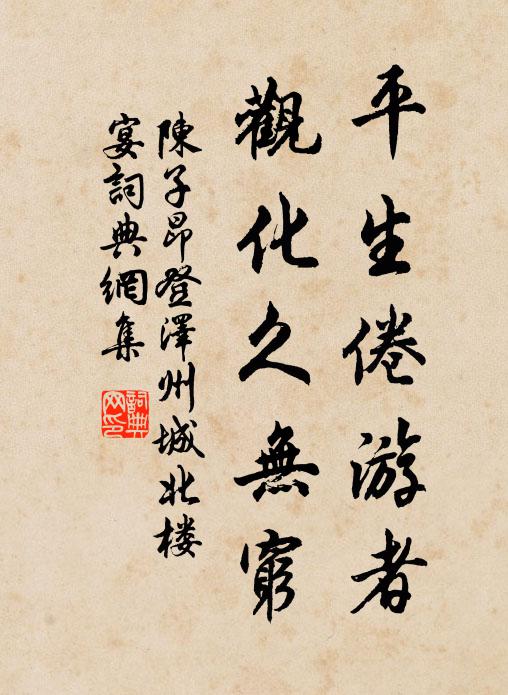 平生倦游者
觀化久無窮
陳子昂登澤州城北楼
宴詞典網集
詞典
网印